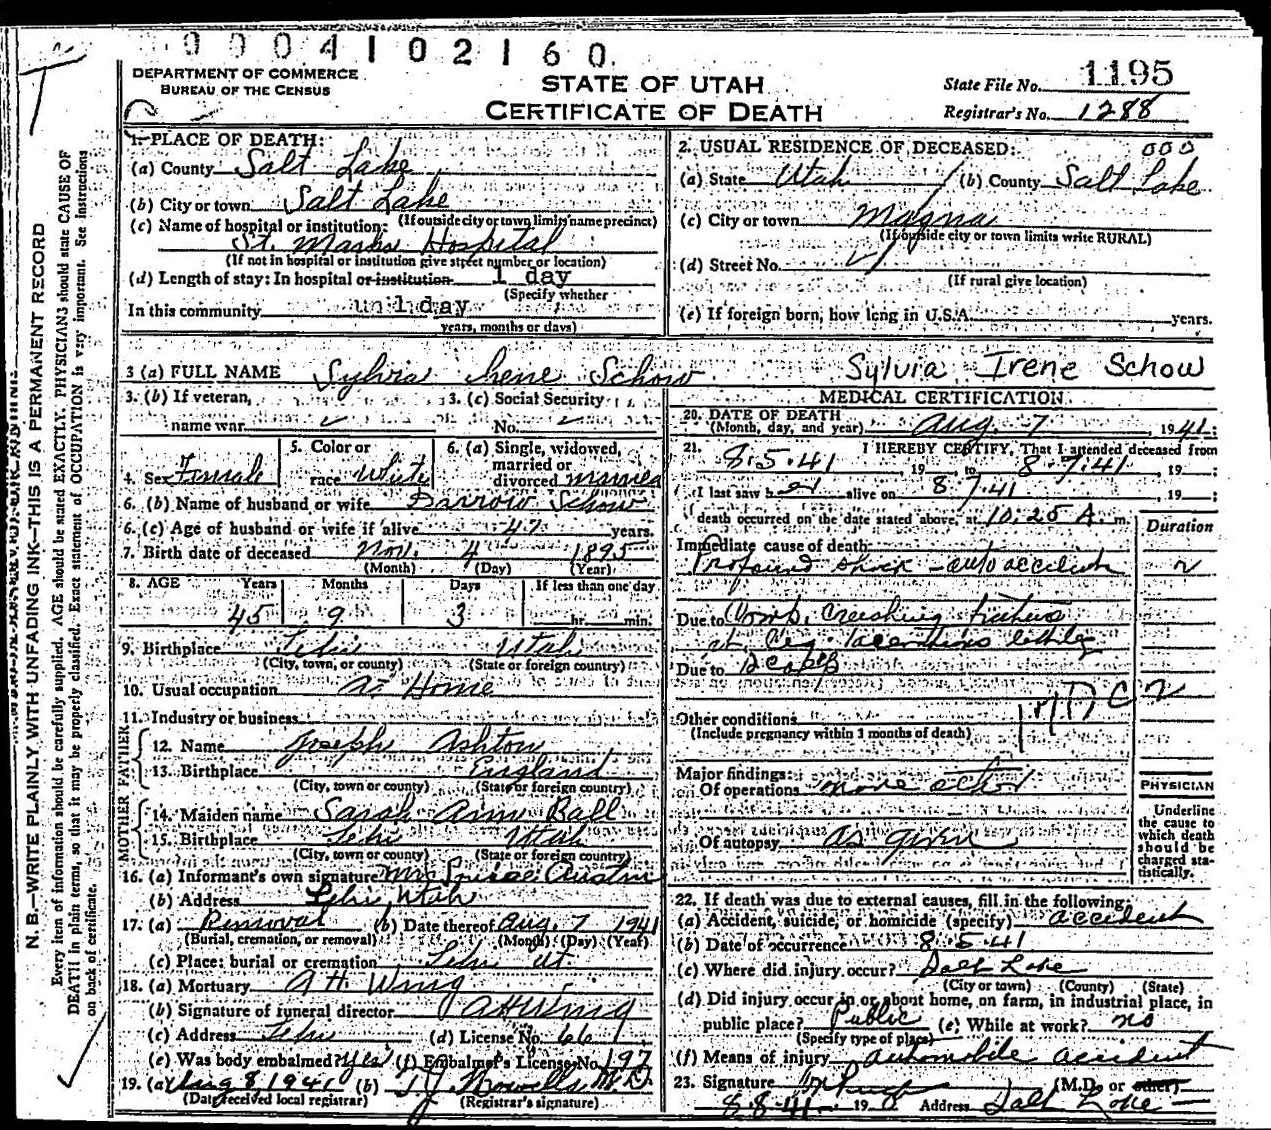 0004102160
DEPARTMENT OF COMMERCE
BUREAU OF THE CENSUS
STATE OF UTAH
CERTIFICATE OF DEATH
State File No. 1195
Registrar's No. 1288
N. B.—WRITE PLAINLY WITH UNFADING INK—THIS IS A PERMANENT RECORD
Every item of information should be carefully supplied. AGE should be stated EXACTLY. PHYSICIANS should state CAUSE OF
DEATH in plain terms, so that it may be properly classified. Exact statement of OCCUPATION is very important. See instructions
on back of certificate.
1. PLACE OF DEATH:
(a) County Salt Lake
(b) City or town Salt Lake
(If outside city or town limits name precinct)
(c) Name of hospital or institution:
St. Marks Hospital
(If not in hospital or institution give street number or location)
(d) Length of stay: In hospital or institution 1 day
(Specify whether
In this community 1 day
years, months or days)
2. USUAL RESIDENCE OF DECEASED: 000
(a) State Utah (b) County Salt Lake
(c) City or town Magna
(If outside city or town limits write RURAL)
(d) Street No.
(If rural give location)
(e) If foreign born, how long in U.S.A. years.
3 (a) FULL NAME Sylvia Irene Schow Sylvia Irene Schow
3. (b) If veteran, name war
3. (c) Social Security No.
4. Sex Female
5. Color or race White
6. (a) Single, widowed, married or divorced married
6. (b) Name of husband or wife Darrow Schow
6. (c) Age of husband or wife if alive 47 years.
7. Birth date of deceased Nov. 4 1895
(Month) (Day) (Year)
8. AGE Years Months Days If less than one day
45 9 3 hr. min.
9. Birthplace Lehi Utah
(City, town, or county) (State or foreign country)
10. Usual occupation At Home
11. Industry or business
FATHER
12. Name Joseph Ashton
13. Birthplace England
(City, town, or county) (State or foreign country)
MOTHER
14. Maiden name Sarah Ann Ball
15. Birthplace Lehi Utah
(City, town or county) (State or foreign country)
16. (a) Informant's own signature Mrs Austin
(b) Address Lehi, Utah
17. (a) Removal (b) Date thereof Aug. 7 1941
(Burial, cremation, or removal) (Month) (Day) (Year)
(c) Place: burial or cremation Lehi Ut.
18. (a) Mortuary A H Wing
(b) Signature of funeral director A H Wing
(c) Address Lehi (d) License No. 661
(e) Was body embalmed? Yes (f) Embalmer's License No. 197
19. (a) Aug 8 1941 (b) M.D.
(Date received local registrar) (Registrar's signature)
MEDICAL CERTIFICATION
20. DATE OF DEATH
(Month, day, and year) Aug. 7, 1941;
21. I HEREBY CERTIFY, That I attended deceased from
8.5.41 19 , to 8.7.41, 19 ;
I last saw her alive on 8.7.41, 19 ;
death occurred on the date stated above, at 10:25 A. m.
Duration
Immediate cause of death
Profound shock - auto accident 2
Due to Comp. Crushing
Due to
Other conditions
(Include pregnancy within 3 months of death)
Major findings:
Of operations none
Of autopsy as given
PHYSICIAN
Underline the cause to which death should be charged statistically.
22. If death was due to external causes, fill in the following:
(a) Accident, suicide, or homicide (specify) accident
(b) Date of occurrence 8.5.41
(c) Where did injury occur? Salt Lake
(City or town) (County) (State)
(d) Did injury occur in or about home, on farm, in industrial place, in
public place? Public (e) While at work? no
(Specify type of place)
(f) Means of injury automobile accident
23. Signature (M.D. or other)
8.8.41 19 Address Salt Lake